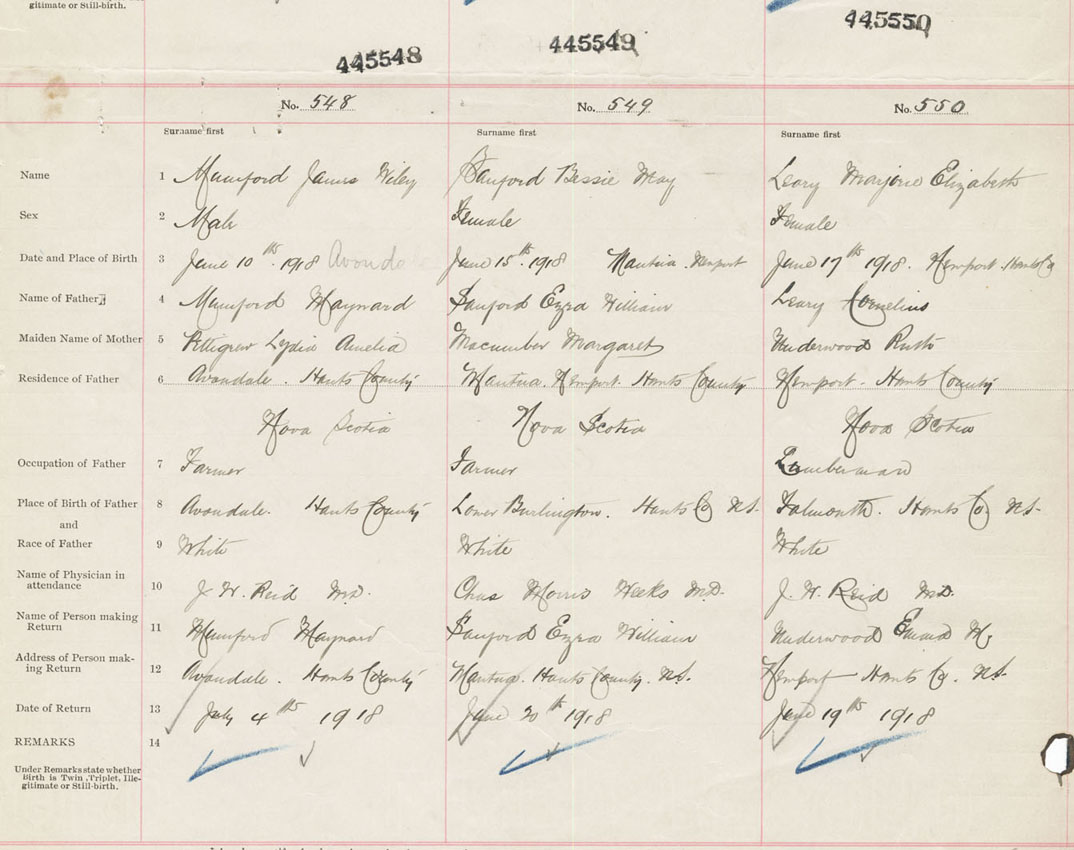 gitimate or Still-birth.
445548 445549 445550
No. 548 No. 549 No. 550
Surname first Surname first Surname first
Name 1 Mumford James Wiley Sanford Bessie May Leary Marjorie Elizabeth
Sex 2 Male Female Female
Date and Place of Birth 3 June 10th 1918 Avondale June 15th 1918 Mantua Newport June 17th 1918. Newport Hants Co
Name of Father 4 Mumford Maynard Sanford Ezra William Leary Cornelius
Maiden Name of Mother 5 Pettigrew Lydia Amelia Macumber Margaret Underwood Ruth
Residence of Father 6 Avondale. Hants County Mantua. Newport. Hants County Newport. Hants County
Nova Scotia Nova Scotia Nova Scotia
Occupation of Father 7 Farmer Farmer Lumberman
Place of Birth of Father 8 Avondale. Hants County Lower Burlington. Hants Co N.S. Falmouth. Hants Co, N.S.
and
Race of Father 9 White White White
Name of Physician in
attendance 10 J. W. Reid M.D. Chas Morris Weeks M.D. J. W. Reid M.D.
Name of Person making
Return 11 Mumford Maynard Sanford Ezra William Underwood
Address of Person mak-
ing Return 12 Avondale. Hants County Mantua. Hants County. N.S. Newport Hants Co. N.S.
Date of Return 13 July 4th 1918 June 20th 1918 June 19th 1918
REMARKS 14
Under Remarks state whether
Birth is Twin, Triplet, Ille-
gitimate or Still-birth.